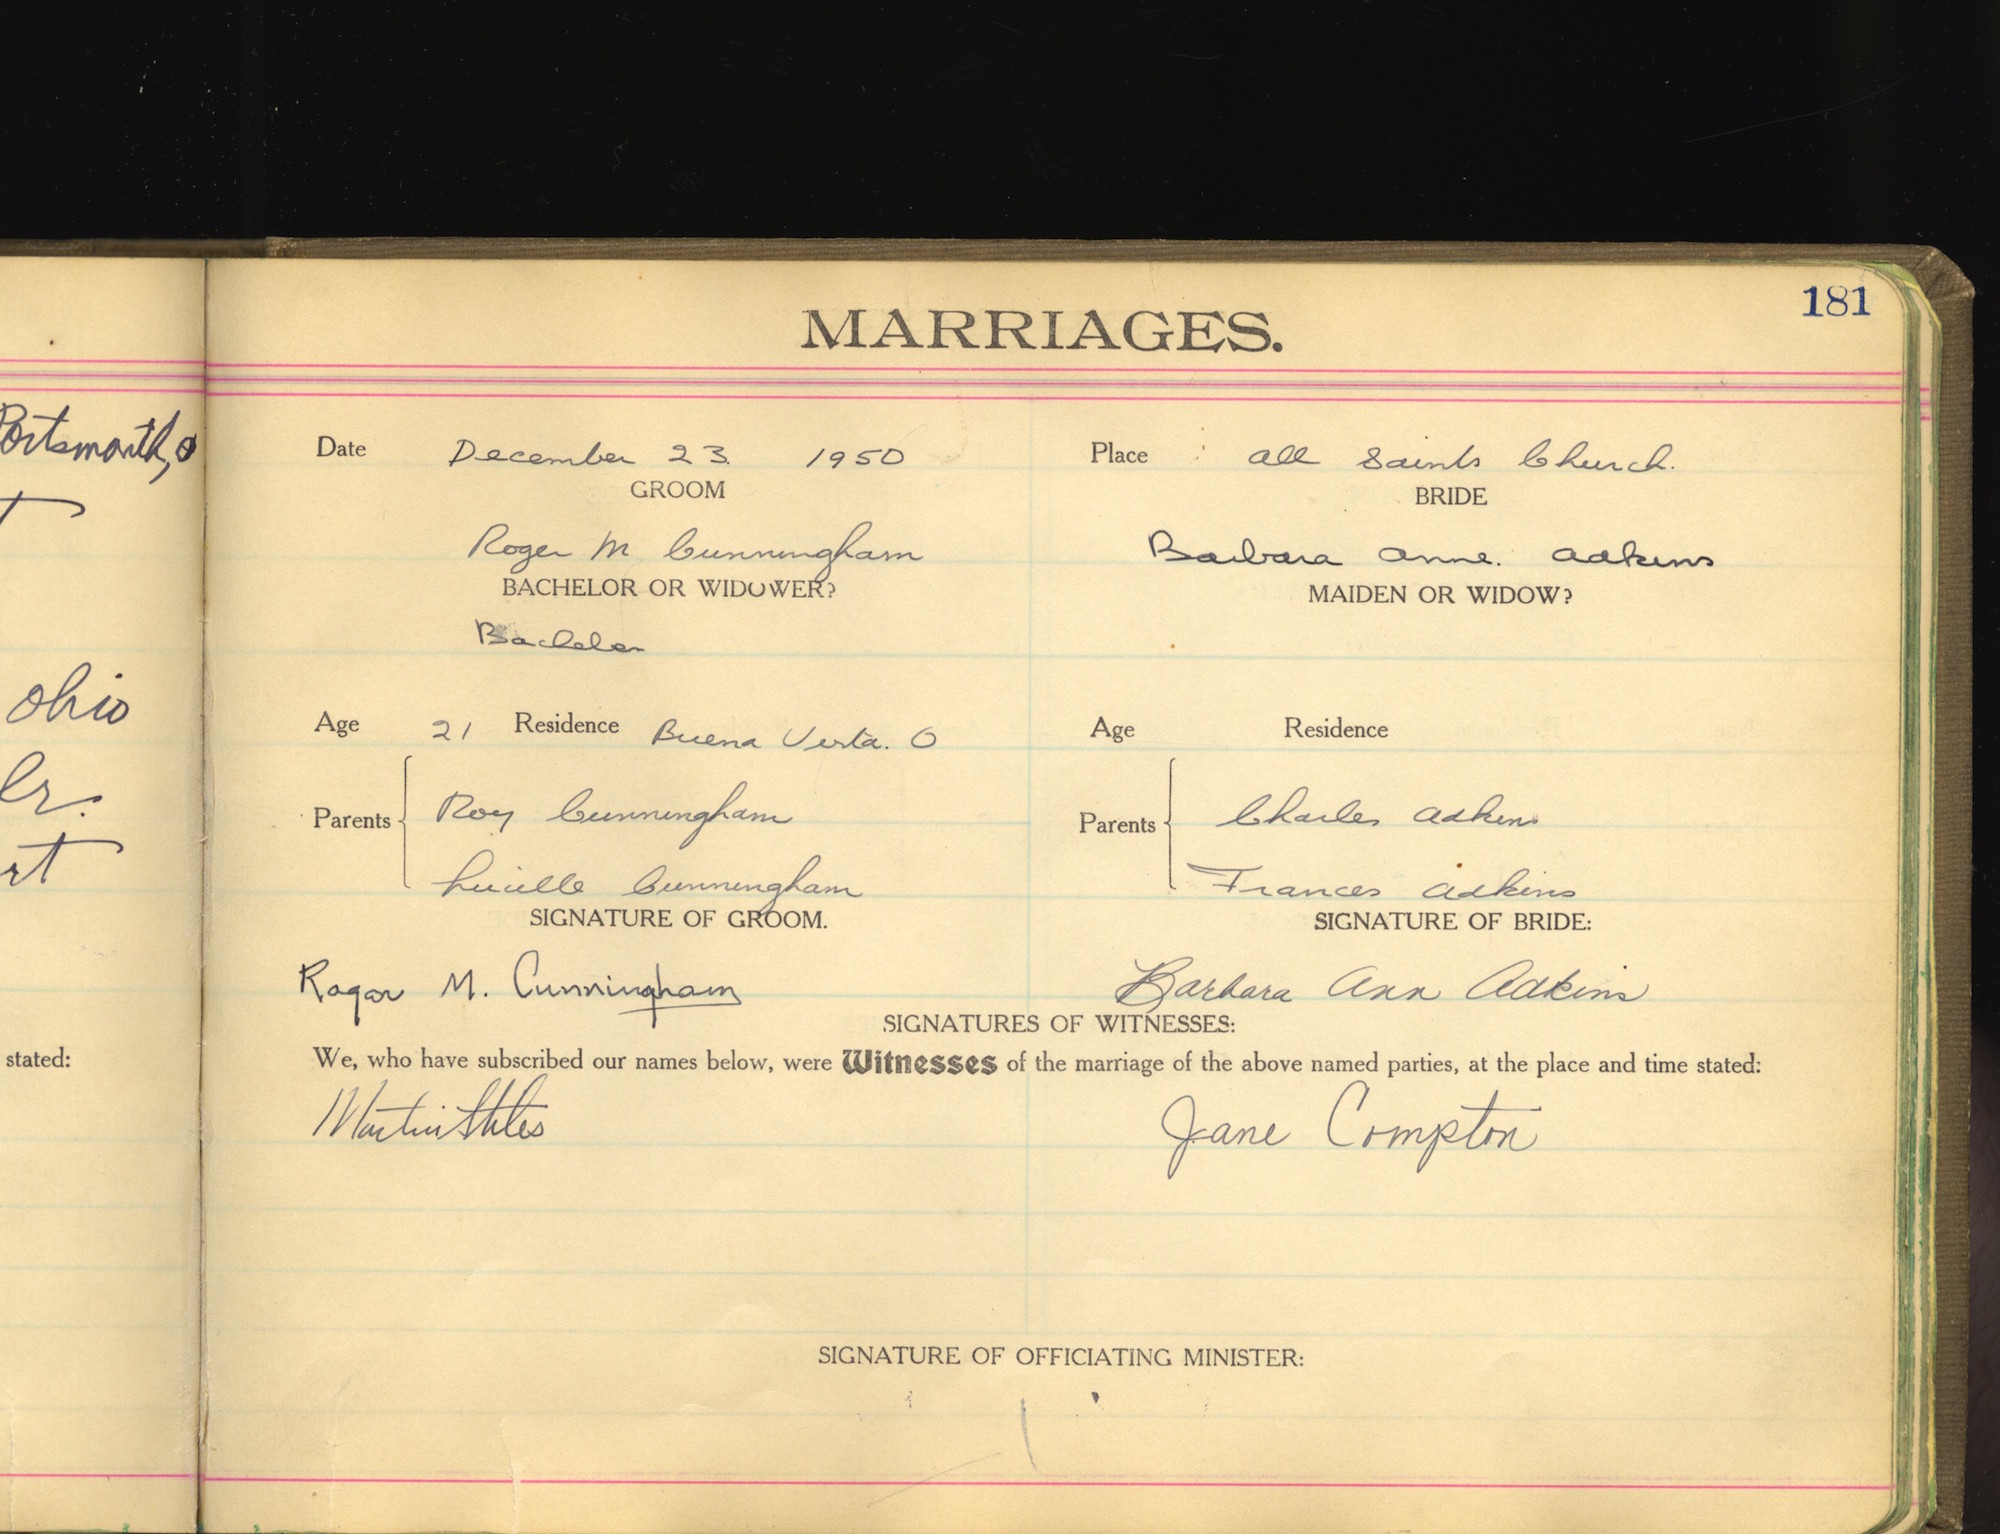 MARRIAGES.
181
Portsmouth, O
Date December 23. 1950 Place : All Saints Church.
GROOM BRIDE
Roger M Cunningham Barbara Anne. Adkins
BACHELOR OR WIDOWER? MAIDEN OR WIDOW?
Bachelor
Ohio
Age 21 Residence Buena Vista. O Age Residence
Parents Roy Cunningham Parents Charles Adkins
Lucille Cunningham Frances Adkins
SIGNATURE OF GROOM. SIGNATURE OF BRIDE:
Roger M. Cunningham Barbara Ann Adkins
SIGNATURES OF WITNESSES:
stated:
We, who have subscribed our names below, were Witnesses of the marriage of the above named parties, at the place and time stated:
Martin Stiles Jane Compton
SIGNATURE OF OFFICIATING MINISTER: